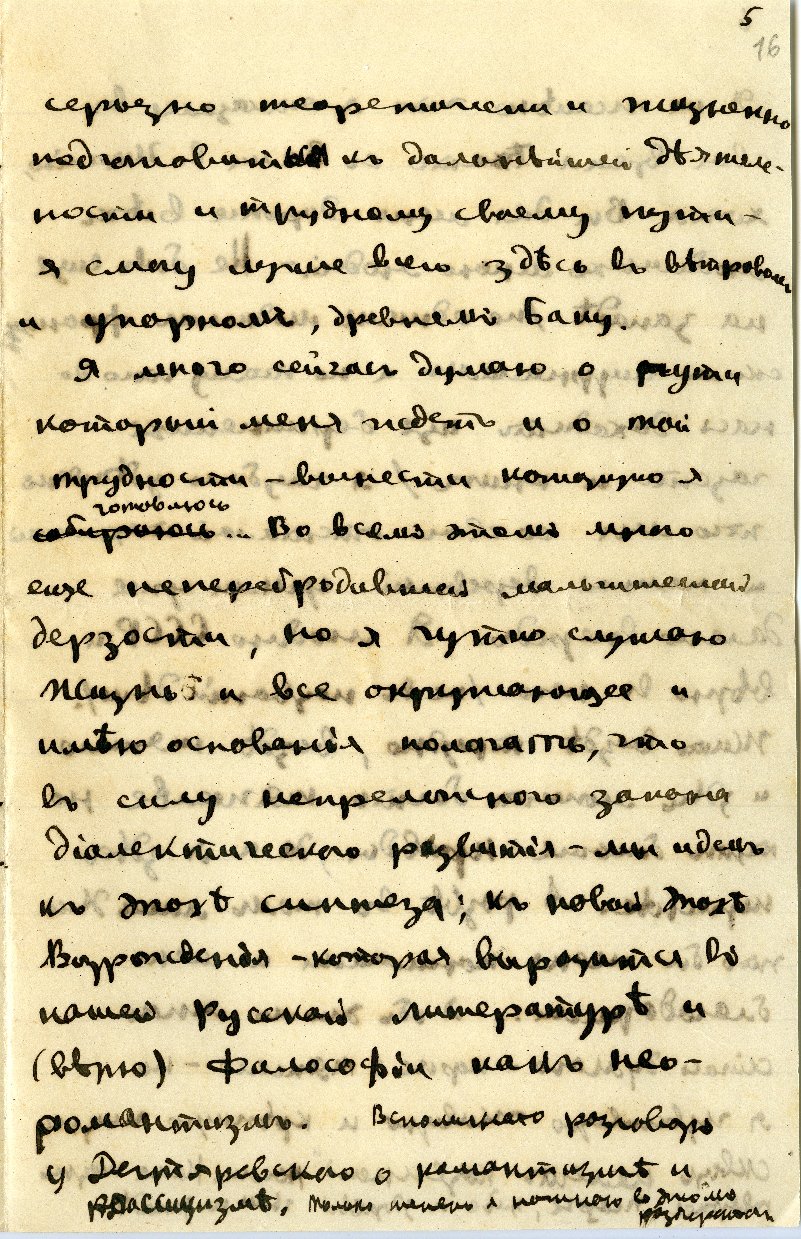 5
16
серьезно теоретически и жизненно
подготовиться къ дальнѣйшей дѣятель-
ности и трудному своему пути –
я смогу лучше всего здѣсь въ вѣтровомъ
и упорномъ, древнемъ Баку.
Я много сейчасъ думаю о пути
который меня ждетъ и о той
трудности – вынести которую я
готовлюсь
собираюсь... Во всемъ этомъ много
еще неперебродившей мальчишеской
дерзости, но я чутко слушаю
Жизнь и все окружающее и
имѣю основанія полагать, что
въ силу непреложного закона
діалектического развитія – мы идемъ
къ эпохѣ синтеза; къ новой эпохѣ
Возрожденія – которая выразится въ
нашей русской литературѣ и
(вѣрю) – философіи какъ нео-
романтизмъ. Вспоминаю разговоры
у Дегтяревского о романтизмѣ и
классицизмѣ. Только теперь я начинаю въ этомъ
разбираться